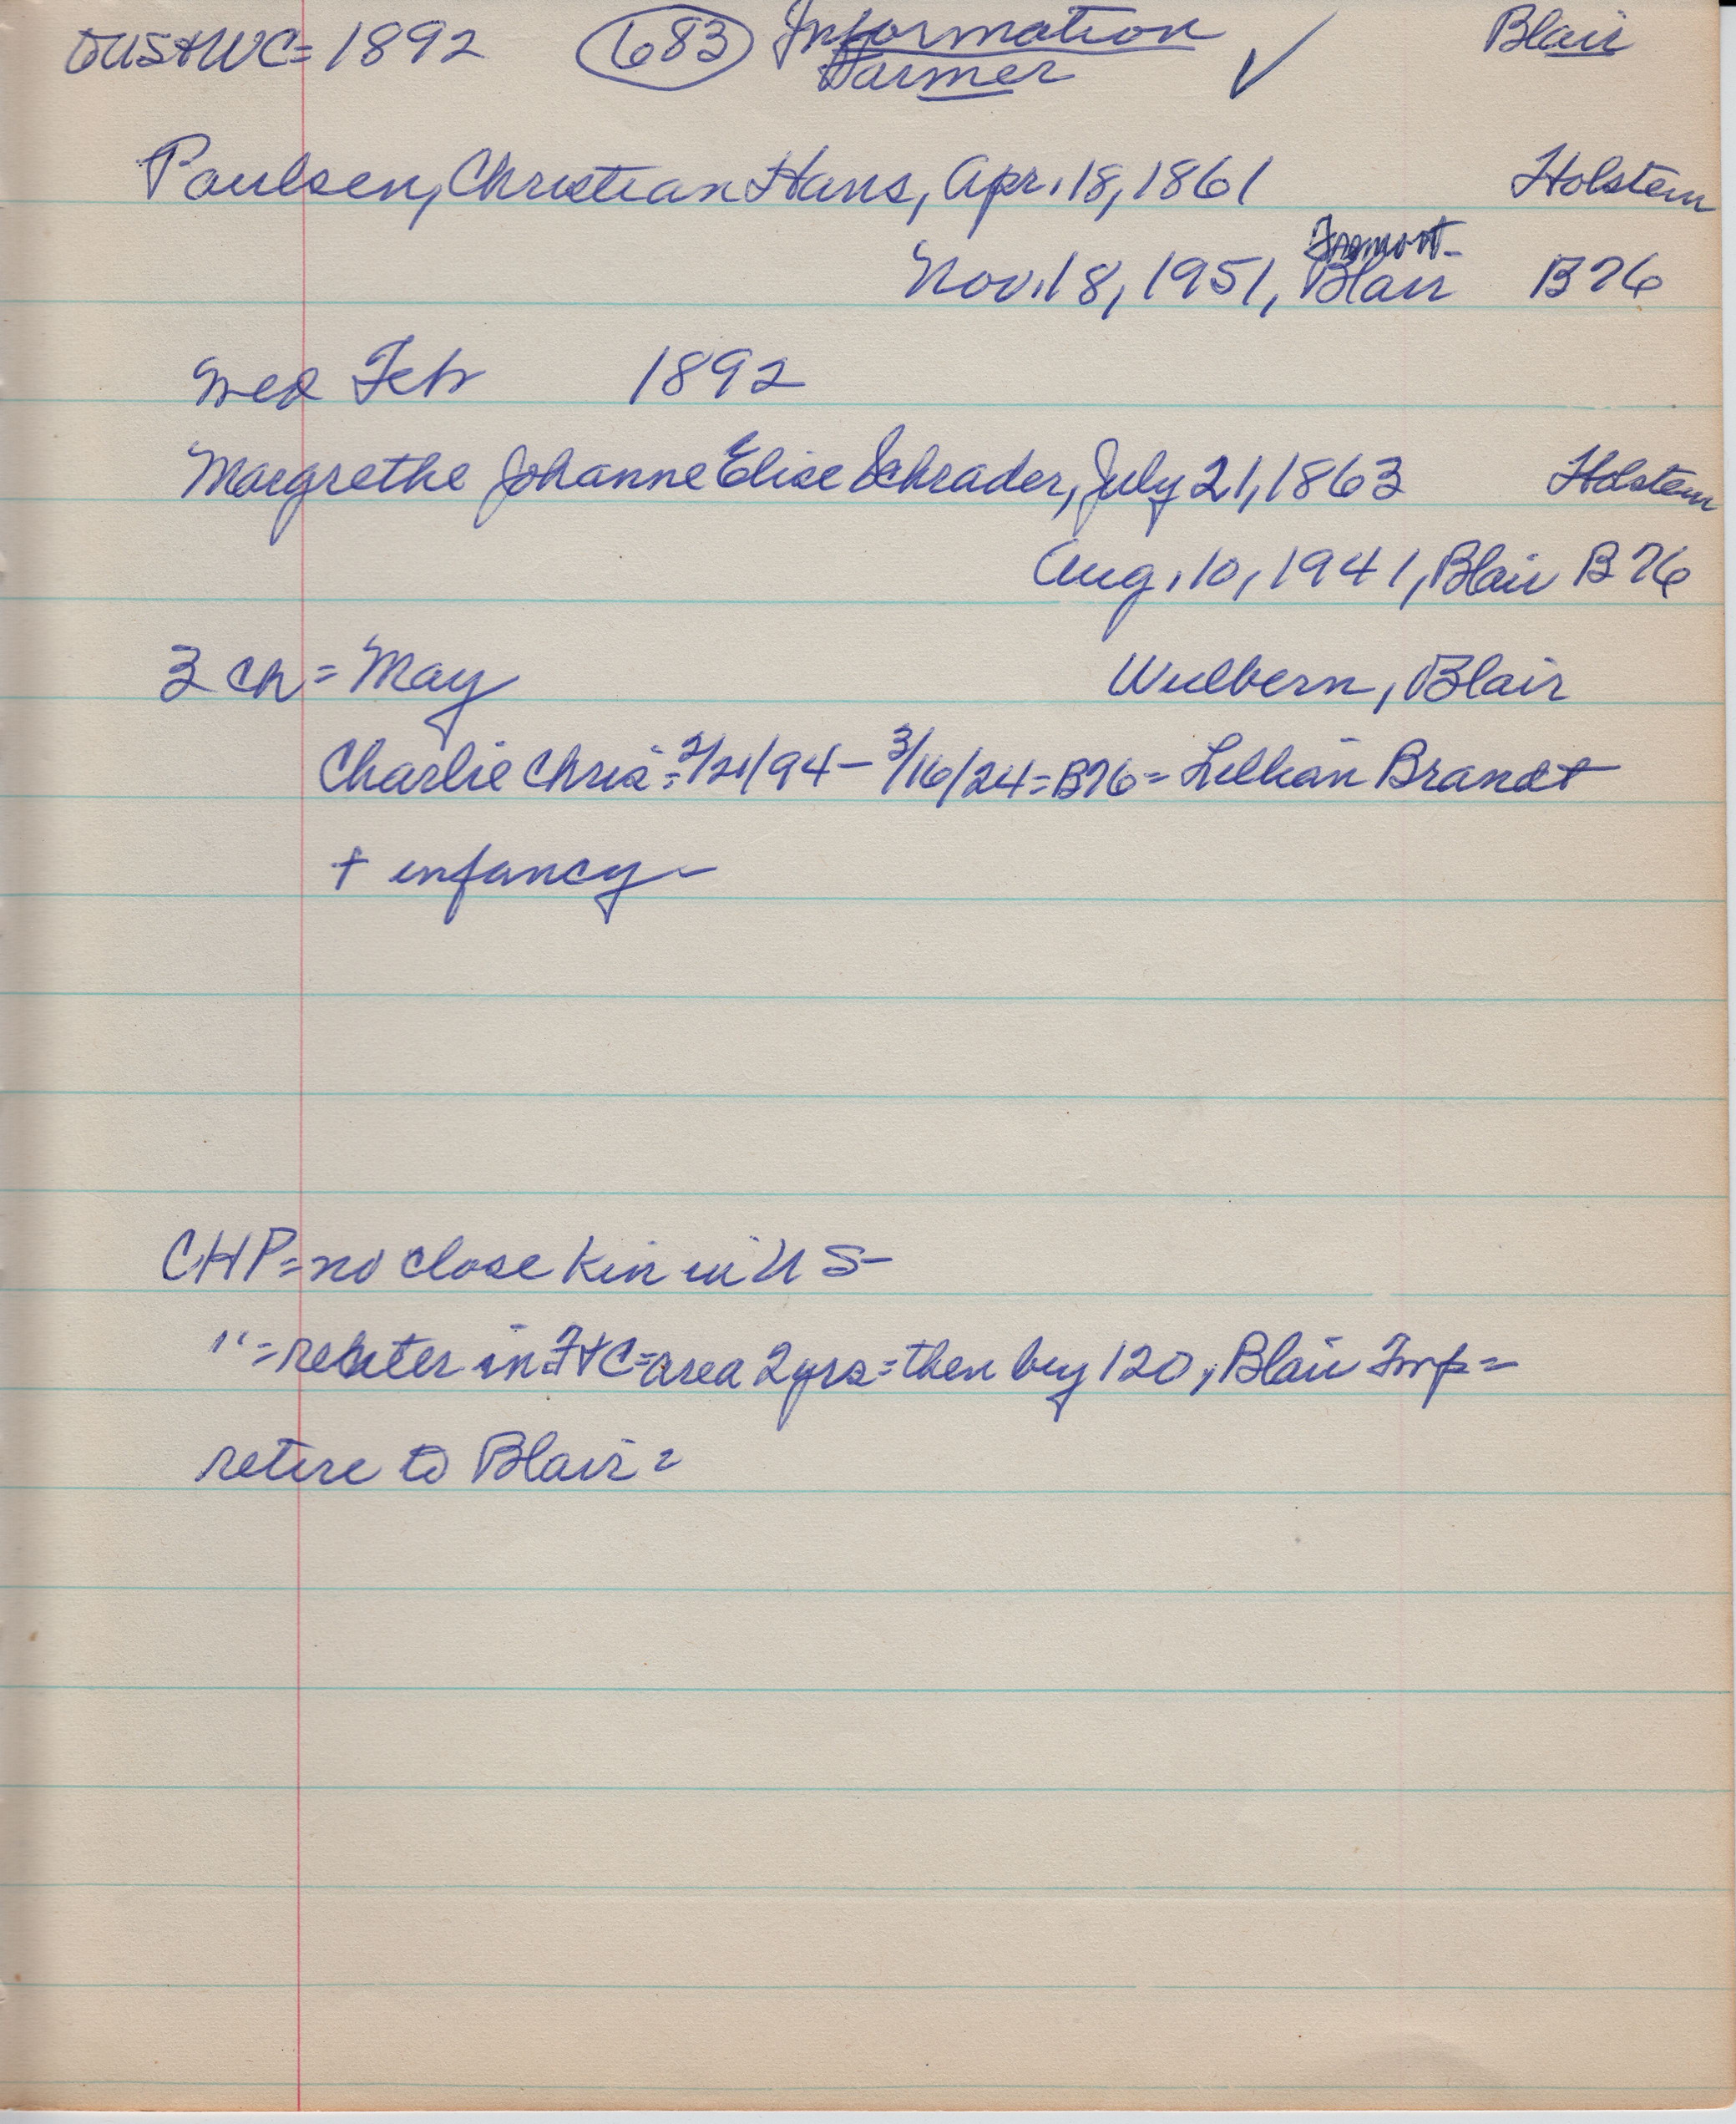 TUS+WC= 1892 (683) Information ✓ Blair
Farmer
Paulsen, Christian Hans, Apr. 18, 1861 Holstein
Fremont-
Nov. 18, 1951, Blair B76
wed Feb 1892
Margrethe Johanne Elise Schrader, July 21, 1863 Holstein
Aug. 10, 1941, Blair B76
3 ch = May Wulbern, Blair
Charlie Chris = 2/21/94 - 3/16/24 = B76 = Lillian Brandt
+ infancy -
CHP = no close kin in US -
" = renter in FtC = area 2 yrs = then buy 120, Blair Twp =
retire to Blair =